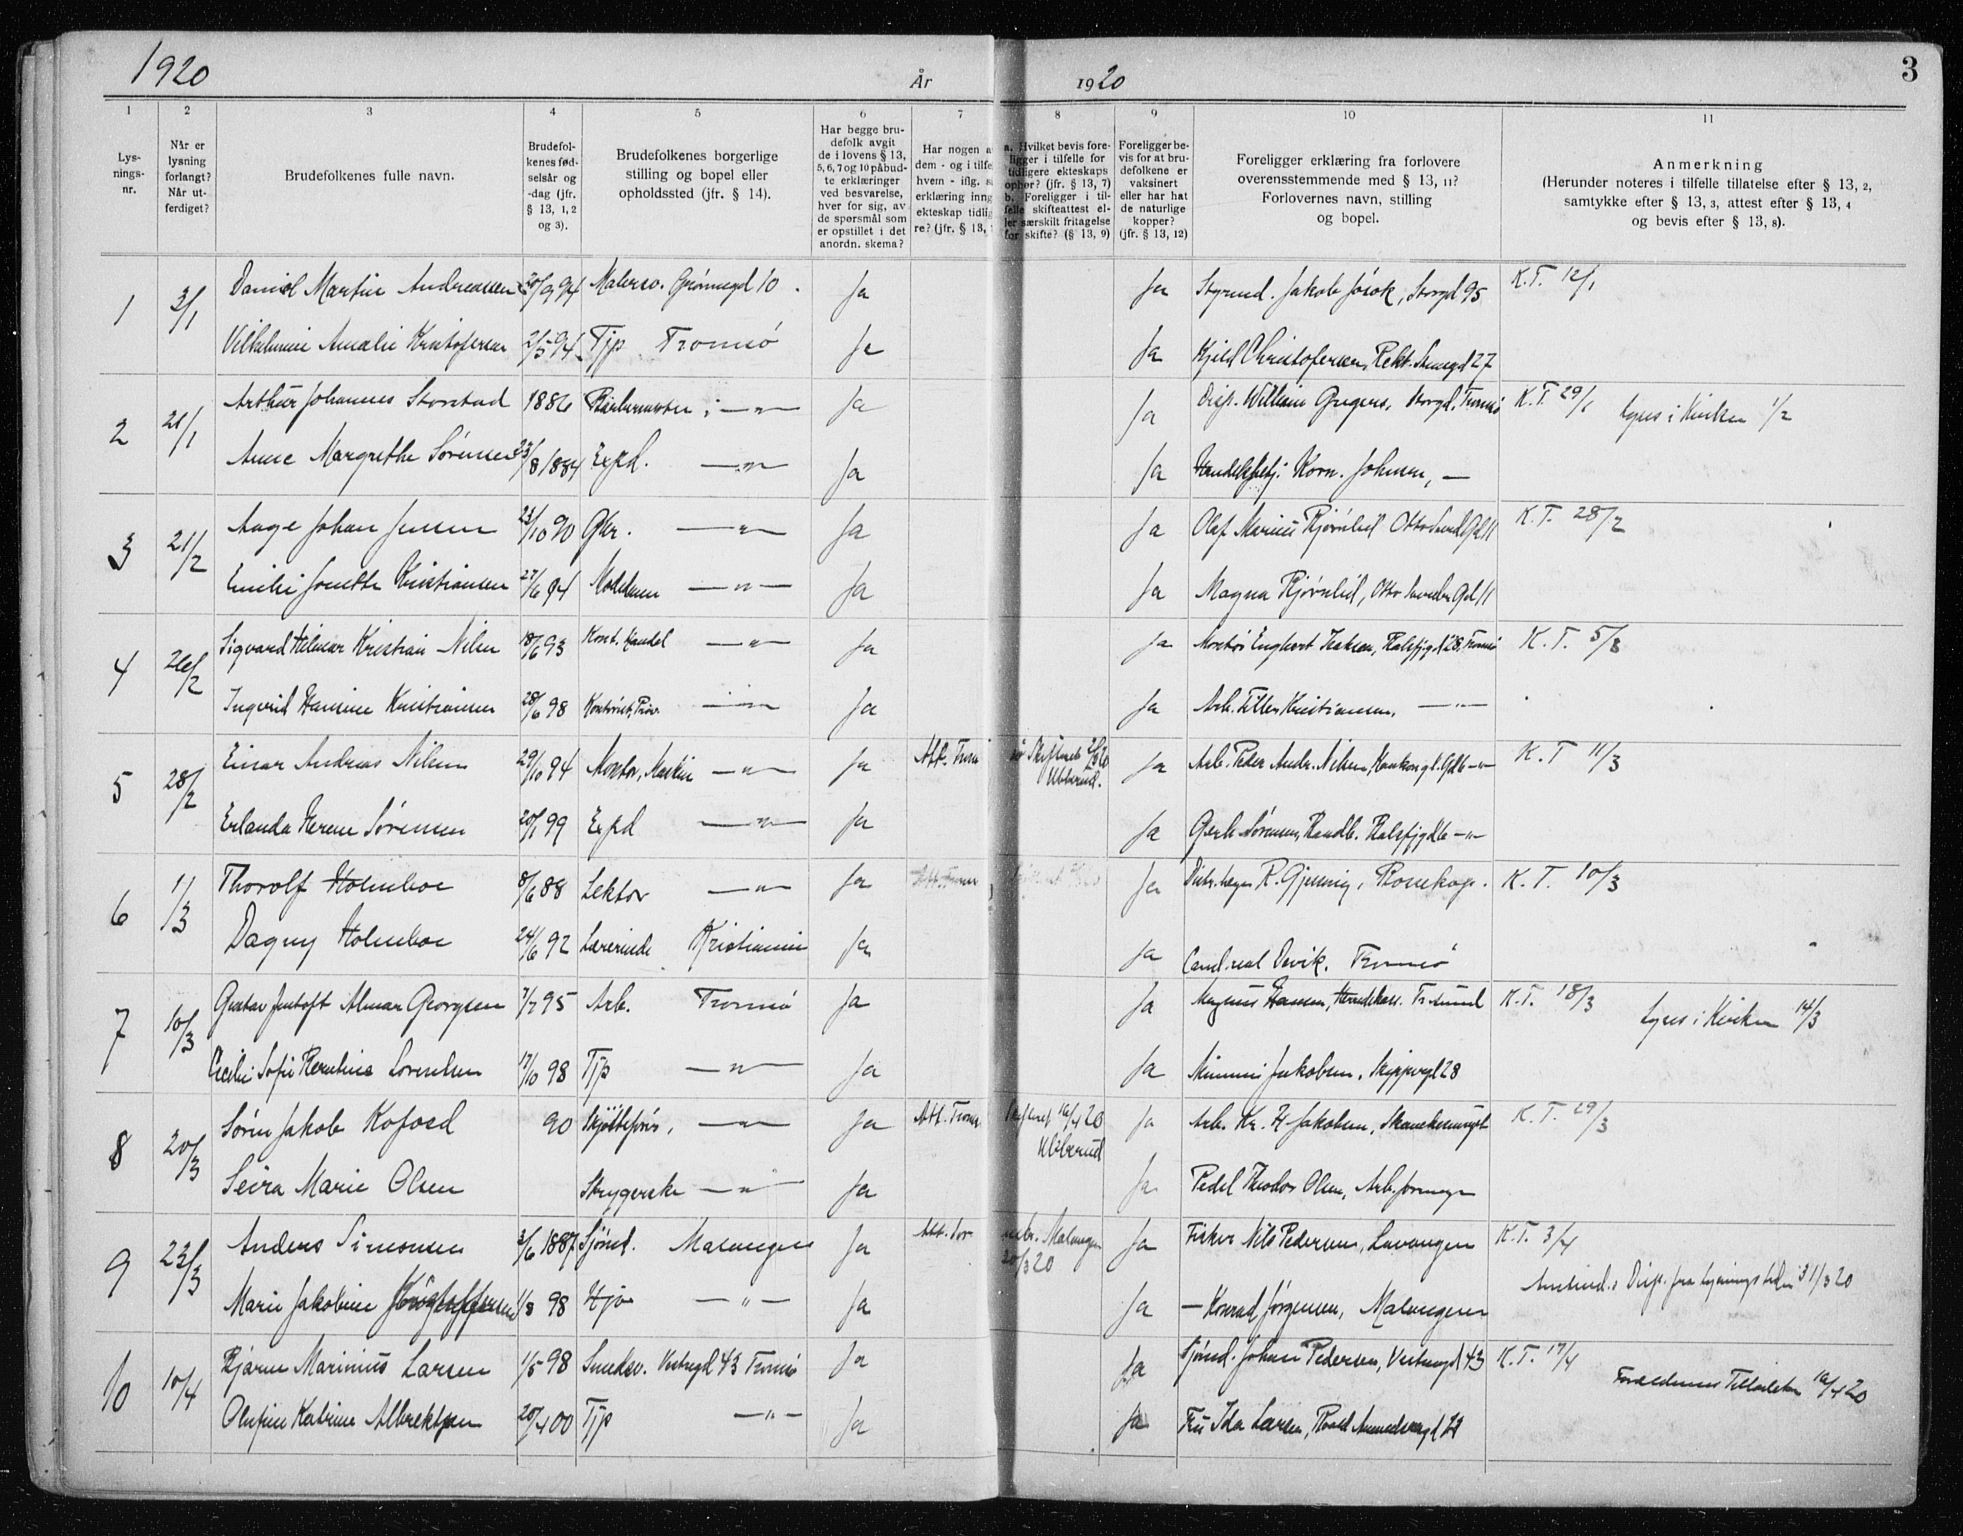 1920 År 1920 3
1 2 3 4 5 6 7 8 9 10 11
Lys-
nings-
nr.
Når er
lysning
forlangt?
Når ut-
ferdiget?
Brudefolkenes fulle navn.
Brudefol-
kenes fød-
selsår og
-dag (jfr.
§ 13, 1, 2
og 3).
Brudefolkenes borgerlige
stilling og bopel eller
opholdssted (jfr. § 14).
Har begge bru-
defolk avgit
de i lovens § 13,
5, 6, 7 og 10 påbud-
te erklæringer
ved besvarelse,
hver for sig, av
de spørsmål som
er opstillet i det
anordn. skema?
Har nogen a
dem - og i tilfe
hvem - iflg. s
erklæring inng
ekteskap tidlig
re? (jfr. § 13,
a. Hvilket bevis fore-
ligger i tilfelle for
tidligere ekteskaps
ophør? (jfr. § 13, 7)
b. Foreligger i til-
felle skifteattest el-
ler særskilt fritagelse
for skifte? (§ 13, 9)
Foreligger be-
vis for at bru-
defolkene er
vaksinert
eller har hat
de naturlige
kopper?
(jfr. § 13, 12)
Foreligger erklæring fra forlovere
overensstemmende med § 13, 11?
Forlovernes navn, stilling
og bopel.
Anmerkning
(Herunder noteres i tilfelle tillatelse efter § 13, 2,
samtykke efter § 13, 3, attest efter § 13, 4
og bevis efter § 13, 8).
1 3/1 Daniel Martin Andreassen 20/9 94 Malersv. Grønnegd 10. Ja Ja Styrmd. Jakob Jøsok, Storgd 95 K.T. 12/1
Vilhelmine Amalie Kristofersen 2/5 94 Tjp Tromsø Ja Ja Kjeld Christofersen, Rekt. Steensgd 27
2 21/1 Arthur Johannes Storstad 1886 Barbermester i —"— Ja Ja Disp. William Gregers, Storgd, Tromsø K.T. 29/1 lyses i Kirken 1/2
Anne Margrethe Sørensen 23/8 1884 Expd. —"— Ja Ja Handelsbetj. Korn. Johnsen, —
3 21/2 Aage Johan Jensen 23/10 90 Gbr. —"— Ja Ja Olaf Marius Bjørnlid Otto Sverd Gd 11 K.T. 28/2
Emilie Jonette Kristiansen 27/6 94 —"— Ja Ja Magna Bjørnlid, Otto Sverdr Gd 11
4 26/2 Sigvard Hilmar Kristian Nilsen 18/6 93 Kont. Handel —"— Ja Ja Montør Engbert Isaksen, Balsfjgd 28, Tromsø K.T. 5/3
Ingvarda Hansine Kristiansen 28/6 98 —"— Ja Ja Arb. Kristiansen, —"—
5 28/2 Einar Andreas Nilsen 29/10 94 Montør, Maskin —"— Ja Att. Tromsø Skifteret 20 Ja Arb. Peder Andr. Nilsen, —"— K.T 11/3
Erlanda Herene Sørensen 20/1 99 Expd —"— Ja Ja Gerh. Sørensen, Handlb. Balsfjgd 6 —"—
6 1/3 Thorolf Holmboe 8/6 88 Lektor —"— Ja Ja Distr.læge R. Gjessing, Bossekop. K.T. 10/3
Dagny Holmboe 24/6 92 Lærerinde Kristiania Ja Ja Cand.real Devik, Tromsø
7 10/3 Gustav Jentoft Almar Georgsen 7/7 95 Arb. Tromsø Ja Ja Magnus Hansen, Tr.sund K.T. 18/3 lyses i Kirken 14/3
Cecilie Sofie Berntine Lorentsen 17/10 98 Tjp —"— Ja Ja Mimmi Jakobsen, Skippergd 28
8 20/3 Sørin Jakob Kofoed 90 Skjøitefører, —"— Ja Att. Tromsø Skifteret 16/4 20 Ja Arb. Kr. H Jakobsen, K.T. 29/3
Seira Marie Olsen Strygerske —"— Ja Ja Pedel Theodor Olsen,
9 23/3 Anders Simonsen 3/6 1887 Sjømd. Malangen Ja Att. Malangen 20/3 20 Ja Fisker Nils Pedersen, Lavangen K.T. 3/4
Marie Jakobine Kristoffersen 1/8 98 Hjv —"— Ja Ja — Konrad Jørgensen, Malangen Amtmd.s Disp. fra lysningstiden 31/3 20
10 10/4 Bjarne Marinius Larsen 1/5 98 Smedsv. Vestregd 43 Tromsø Ja Ja Sjømd. Johan Pedersen, Vestregd 43 K.T. 17/4
Olufine Katrine Albrektsen 20/4 00 Tjp —"— Ja Ja Fru Ida Larsen, Roald Amundsensgd Forældrenes Tilladelse 16/4 20